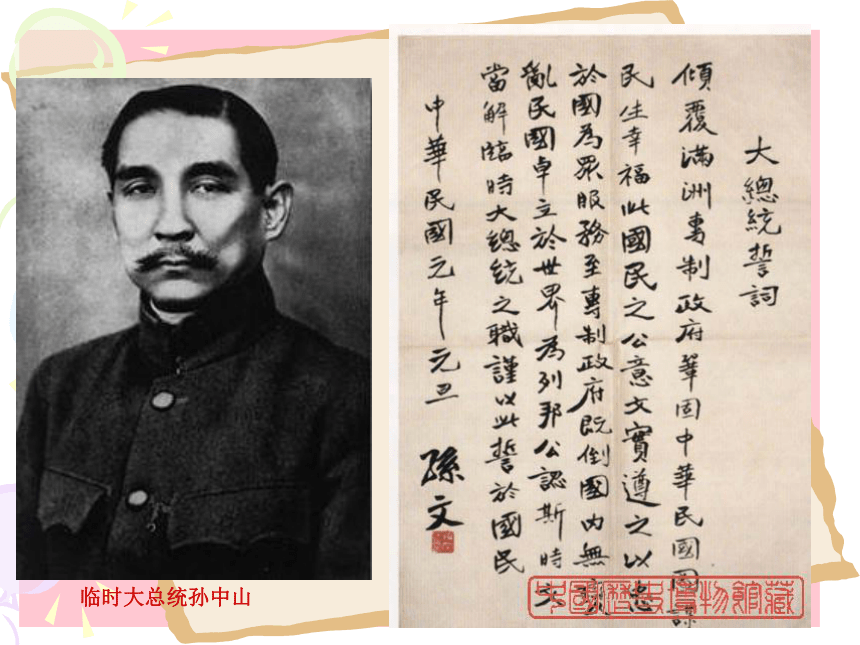 大總統誓詞
傾覆滿洲專制政府鞏固中華民國圖謀
民生幸福此國民之公意文實遵之以忠
於國為眾服務至專制政府既倒國內無變
亂民國卓立於世界為列邦公認斯時文
當解臨時大總統之職謹以此誓於國民
中華民國元年元旦
孫文
中國歷史博物館藏
临时大总统孙中山